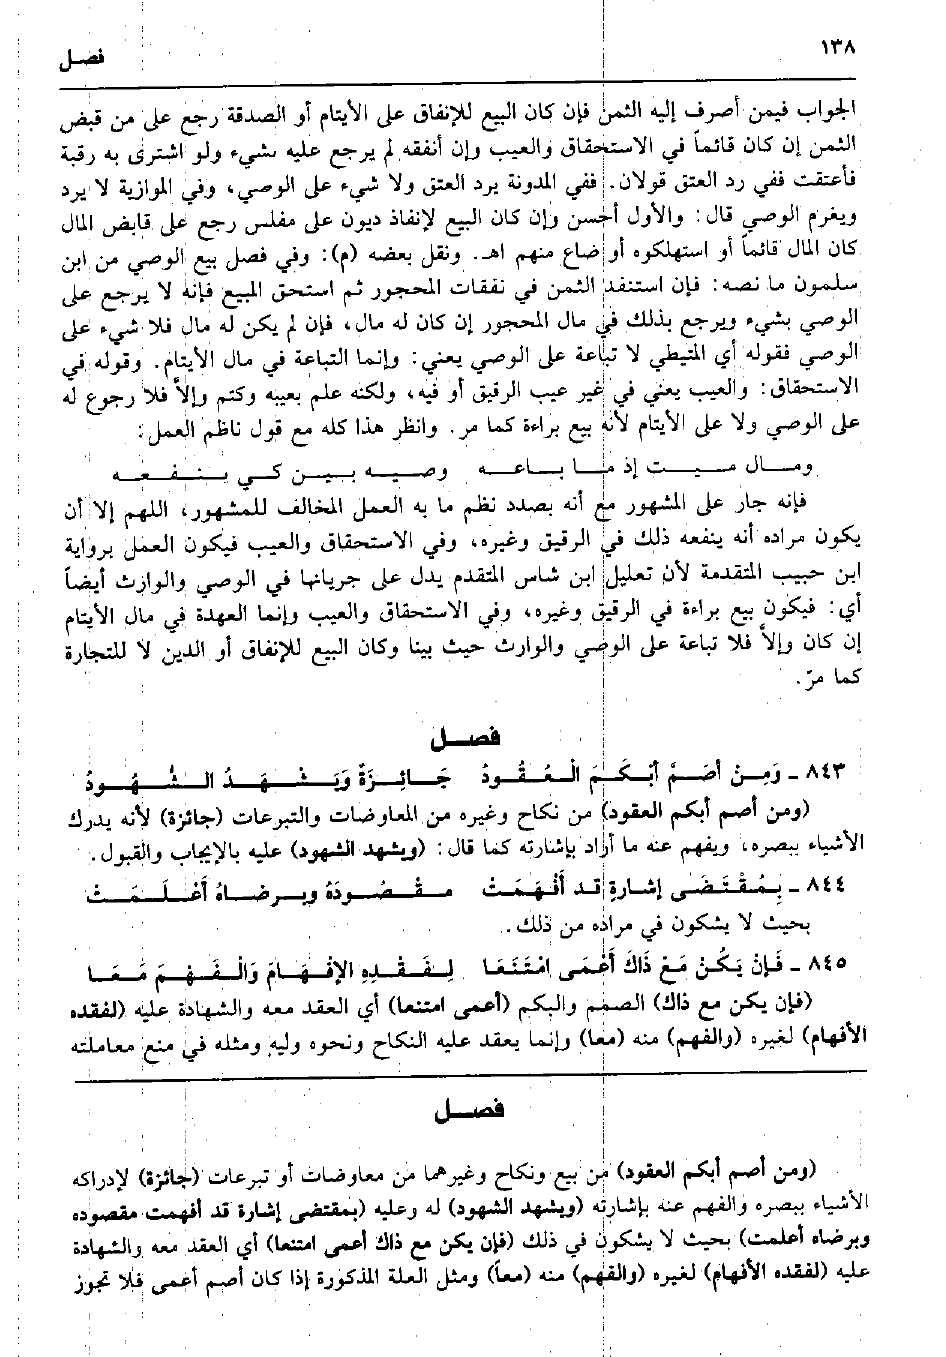 ١٣٨
فصل
الجواب فيمن أصرف إليه الثمن فإن كان البيع للإنفاق على الأيتام أو الصدقة رجع على من قبض
الثمن إن كان قائماً في الاستحقاق والعيب وإن أنفقه لم يرجع عليه بشيء ولو اشترى به رقبة
فأعتقت ففي رد العتق قولان. ففي المدونة يرد العتق ولا شيء على الوصي، وفي الموازية لا يرد
ويغرم الوصي قال: والأول أحسن وإن كان البيع لإنفاذ ديون على مفلس رجع على قابض المال
كان المال قائماً أو استهلكوه أو ضاع منهم اهـ. ونقل بعضه (م): وفي فصل بيع الوصي من ابن
سلمون ما نصه: فإن استنفد الثمن في نفقات المحجور ثم استحق المبيع فإنه لا يرجع على
الوصي بشيء ويرجع بذلك في مال المحجور إن كان له مال، فإن لم يكن له مال فلا شيء على
الوصي فقوله أي المتيطي لا تباعة على الوصي يعني: وإنما التباعة في مال الأيتام. وقوله في
الاستحقاق: والعيب يعني في غير عيب الرقيق أو فيه، ولكنه علم بعيبه وكتم وإلاَّ فلا رجوع له
على الوصي ولا على الأيتام لأنه بيع براءة كما مر. وانظر هذا كله مع قول ناظم العمل:
ومـال ميـت إذ مـا بـاعـه وصيـه بيـن كـي ينفعـه
فإنه جار على المشهور مع أنه بصدد نظم ما به العمل المخالف للمشهور، اللهم إلا أن
يكون مراده أنه ينفعه ذلك في الرقيق وغيره، وفي الاستحقاق والعيب فيكون العمل برواية
ابن حبيب المتقدمة لأن تعليل ابن شاس المتقدم يدل على جريانها في الوصي والوارث أيضاً
أي: فيكون بيع براءة في الرقيق وغيره، وفي الاستحقاق والعيب وإنما العهدة في مال الأيتام
إن كان وإلاَّ فلا تباعة على الوصي والوارث حيث بينا وكان البيع للإنفاق أو الدين لا للتجارة
كما مرّ.
فصل
٨٤٣ ـ وَمِـن أصَـمَّ أبْكَـمَ الْعُقُـودُ جَـائِـزَةٌ وَيَشْهَـدُ الشُّهُـودُ
(ومن أصم أبكم العقود) من نكاح وغيره من المعاوضات والتبرعات (جائزة) لأنه يدرك
الأشياء ببصره، ويفهم عنه ما أراد بإشارته كما قال: (ويشهد الشهود) عليه بالإيجاب والقبول.
٨٤٤ ـ بِمُقْتَضَى إشارةٍ قد أَفْهَمَتْ مقْصُودَهُ وبـرضـاهُ أَعْلَـمَـتْ
بحيث لا يشكون في مراده من ذلك.
٨٤٥ ـ فَإنْ يَكُنْ مَعْ ذَاكَ أَعْمَى امْتَنَعَا لِفَقْدِهِ الإفْهَـامَ وَالْفَهْـمَ مَعَـا
(فإن يكن مع ذاك) الصمم والبكم (أعمى امتنعا) أي العقد معه والشهادة عليه (لفقده
الأفهام) لغيره (والفهم) منه (معا) وإنما يعقد عليه النكاح ونحوه وليه ومثله في منع معاملته
فصل
(ومن أصم أبكم العقود) من بيع ونكاح وغيرهما من معاوضات أو تبرعات (جائزة) لإدراكه
الأشياء ببصره والفهم عنه بإشارته (ويشهد الشهود) له وعليه (بمقتضى إشارة قد أفهمت مقصوده
وبرضاه أعلمت) بحيث لا يشكون في ذلك (فإن يكن مع ذاك أعمى امتنعا) أي العقد معه والشهادة
عليه (لفقده الأفهام) لغيره (والفهم) منه (معاً) ومثل العلة المذكورة إذا كان أصم أعمى فلا تجوز